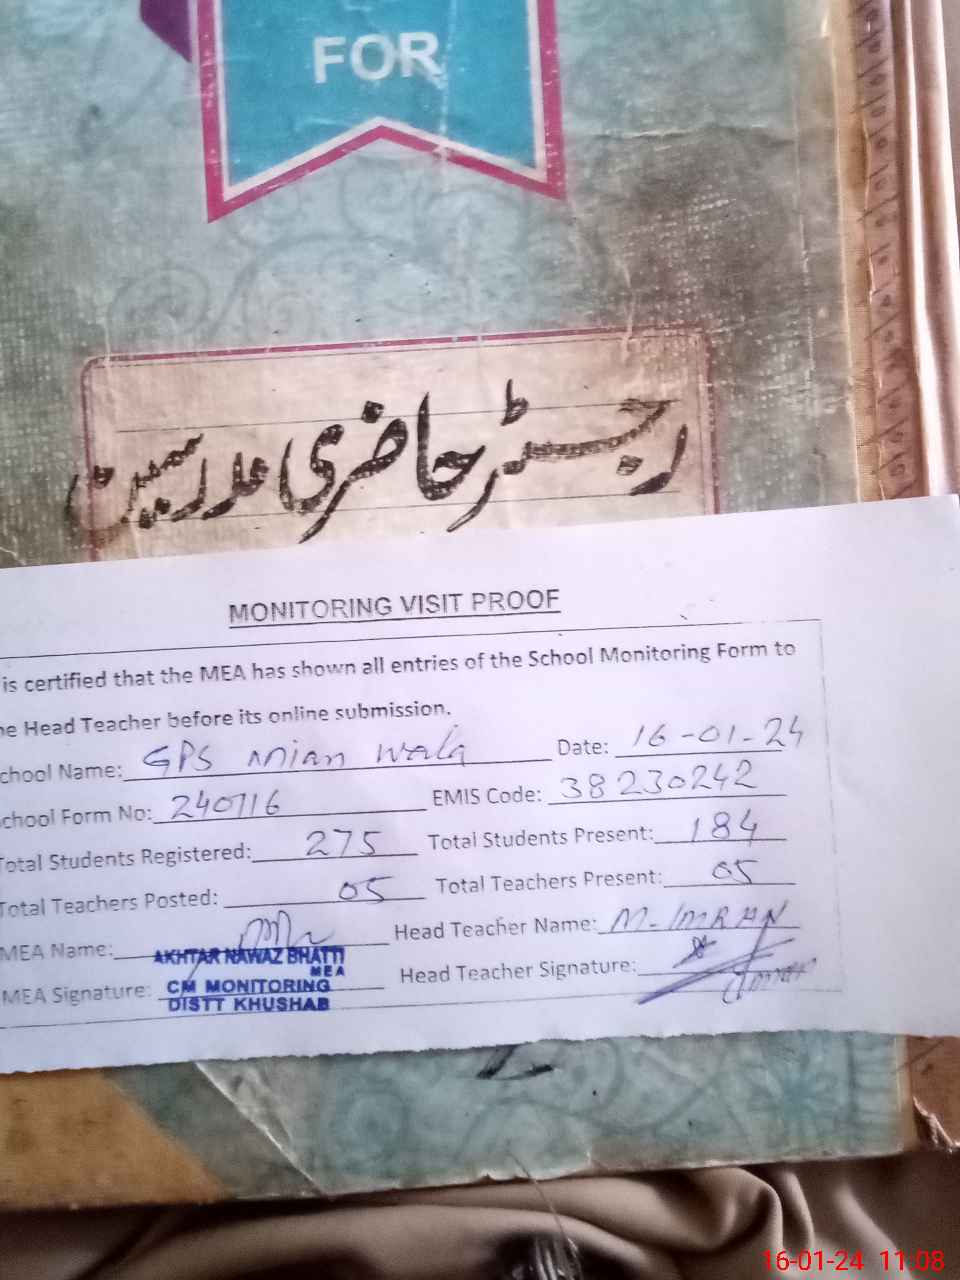 FOR
رجسٹر حاضری مدرسین
MONITORING VISIT PROOF
is certified that the MEA has shown all entries of the School Monitoring Form to
he Head Teacher before its online submission.
chool Name: GPS Mian Wala Date: 16-01-24
chool Form No: 240716 EMIS Code: 38230242
Total Students Registered: 275 Total Students Present: 184
Total Teachers Posted: 05 Total Teachers Present: 05
MEA Name: Head Teacher Name: M-IMRAN
AKHTAR NAWAZ BHATTI
MEA
MEA Signature: CM MONITORING Head Teacher Signature:
DISTT KHUSHAB
16-01-24 11:08